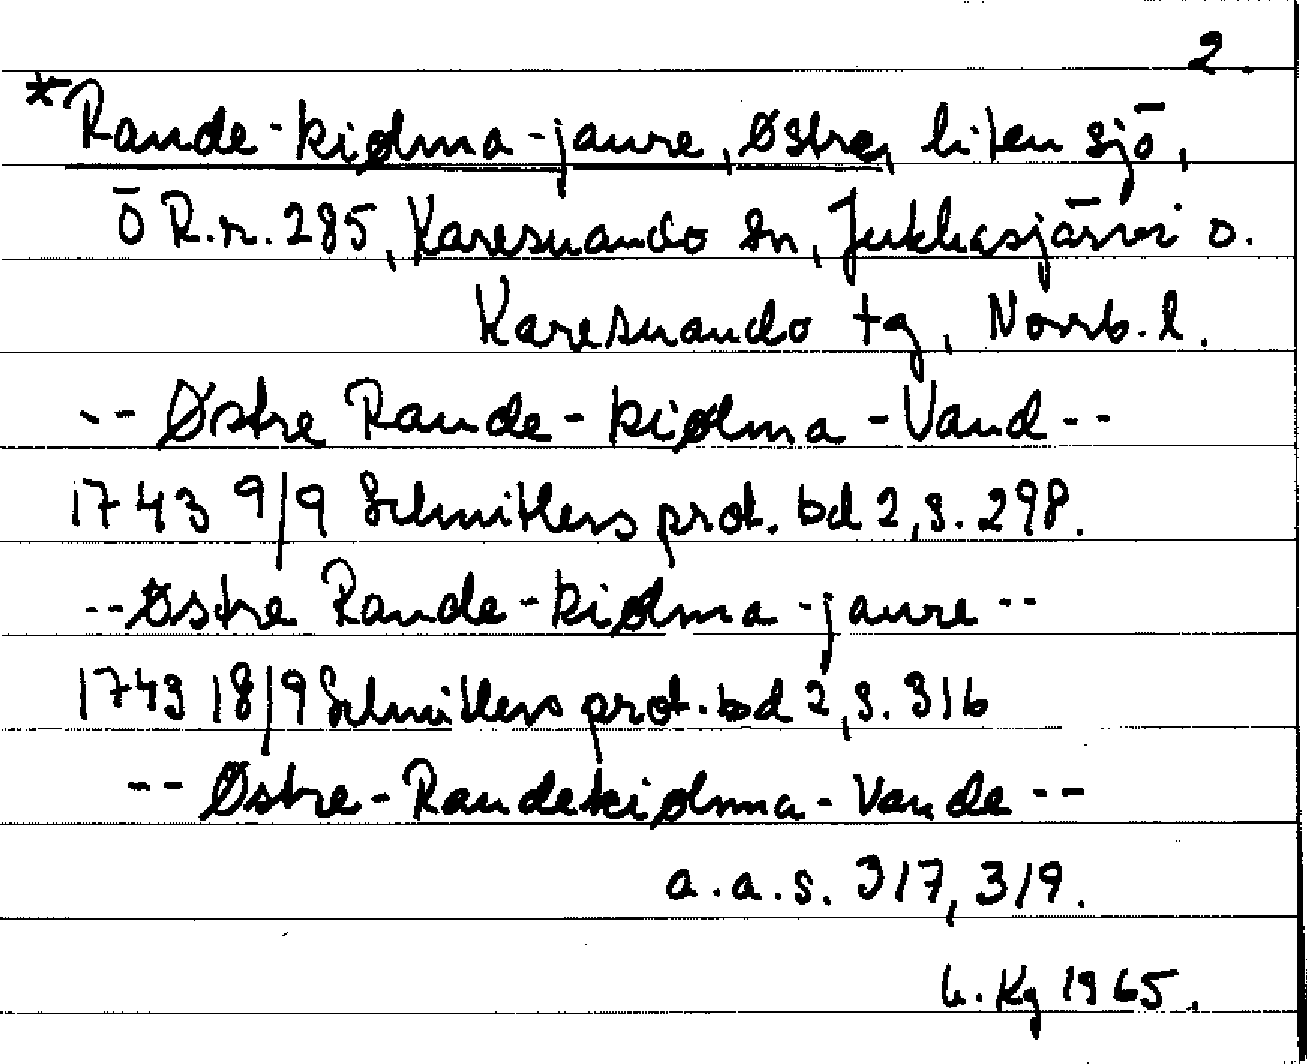 2.
*Rande-kiølma-jaure, Østre, liten sjö,
Ö R.r. 285, Karesuando sn, Jukkasjärvi o.
Karesuando tg, Norrb. l.
-- Østre Rande-kiølma-Vand --
1743 9/9 Schnitlers prot. bd 2, s. 298.
-- Østre Rande-kiølma-jaure --
1743 18/9 Schnitlers prot. bd 2, s. 316
-- Østre-Randekiølma-Vande --
a.a.s. 317, 319.
Kg 1965.